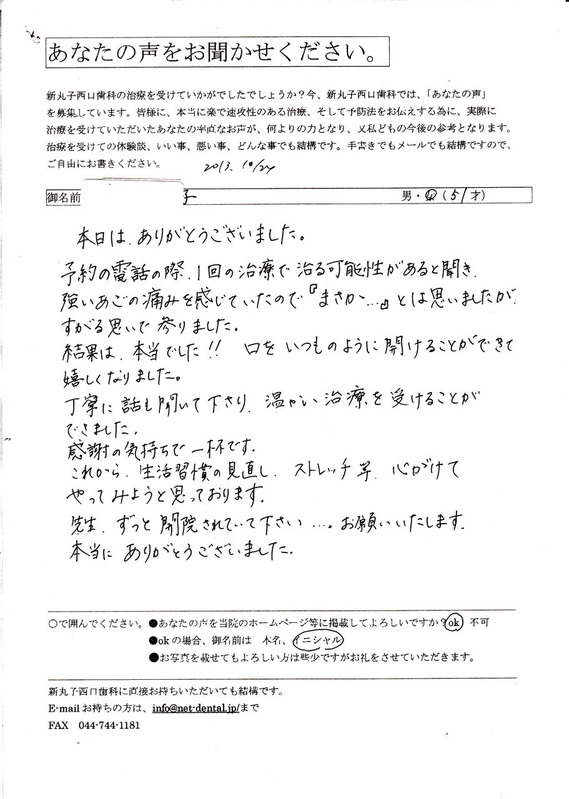 あなたの声をお聞かせください。
新丸子西口歯科の治療を受けていかがでしたでしょうか？今、新丸子西口歯科では、「あなたの声」
を募集しています。皆様に、本当に楽で速攻性のある治療、そして予防法をお伝えする為に、実際に
治療を受けていただいたあなたの率直なお声が、何よりの力となり、又私どもの今後の参考となります。
治療を受けての体験談、いい事、悪い事、どんな事でも結構です。手書きでもメールでも結構ですので、
ご自由にお書きください。 2013. 10/24
御名前 子 男・女（51才）
本日は、ありがとうございました。
予約の電話の際、1回の治療で治る可能性があると聞き、
強いあごの痛みを感じていたので『まさか…』とは思いましたが、
すがる思いで参りました。
結果は、本当でした!! 口をいつものように開けることができて
嬉しくなりました。
丁寧に話も聞いて下さり、温かい治療を受けることが
できました。
感謝の気持ちで一杯です。
これから、生活習慣の見直し、ストレッチ等、心がけて
やってみようと思っております。
先生、ずっと開院されていて下さい…。お願いいたします。
本当にありがとうございました。
○で囲んでください。●あなたの声を当院のホームページ等に掲載してよろしいですか？ok 不可
●okの場合、御名前は 本名、イニシャル
●お写真を載せてもよろしい方は些少ですがお礼をさせていただきます。
新丸子西口歯科に直接お持ちいただいても結構です。
E-mailお持ちの方は、info@net-dental.jp/まで
FAX 044-744-1181